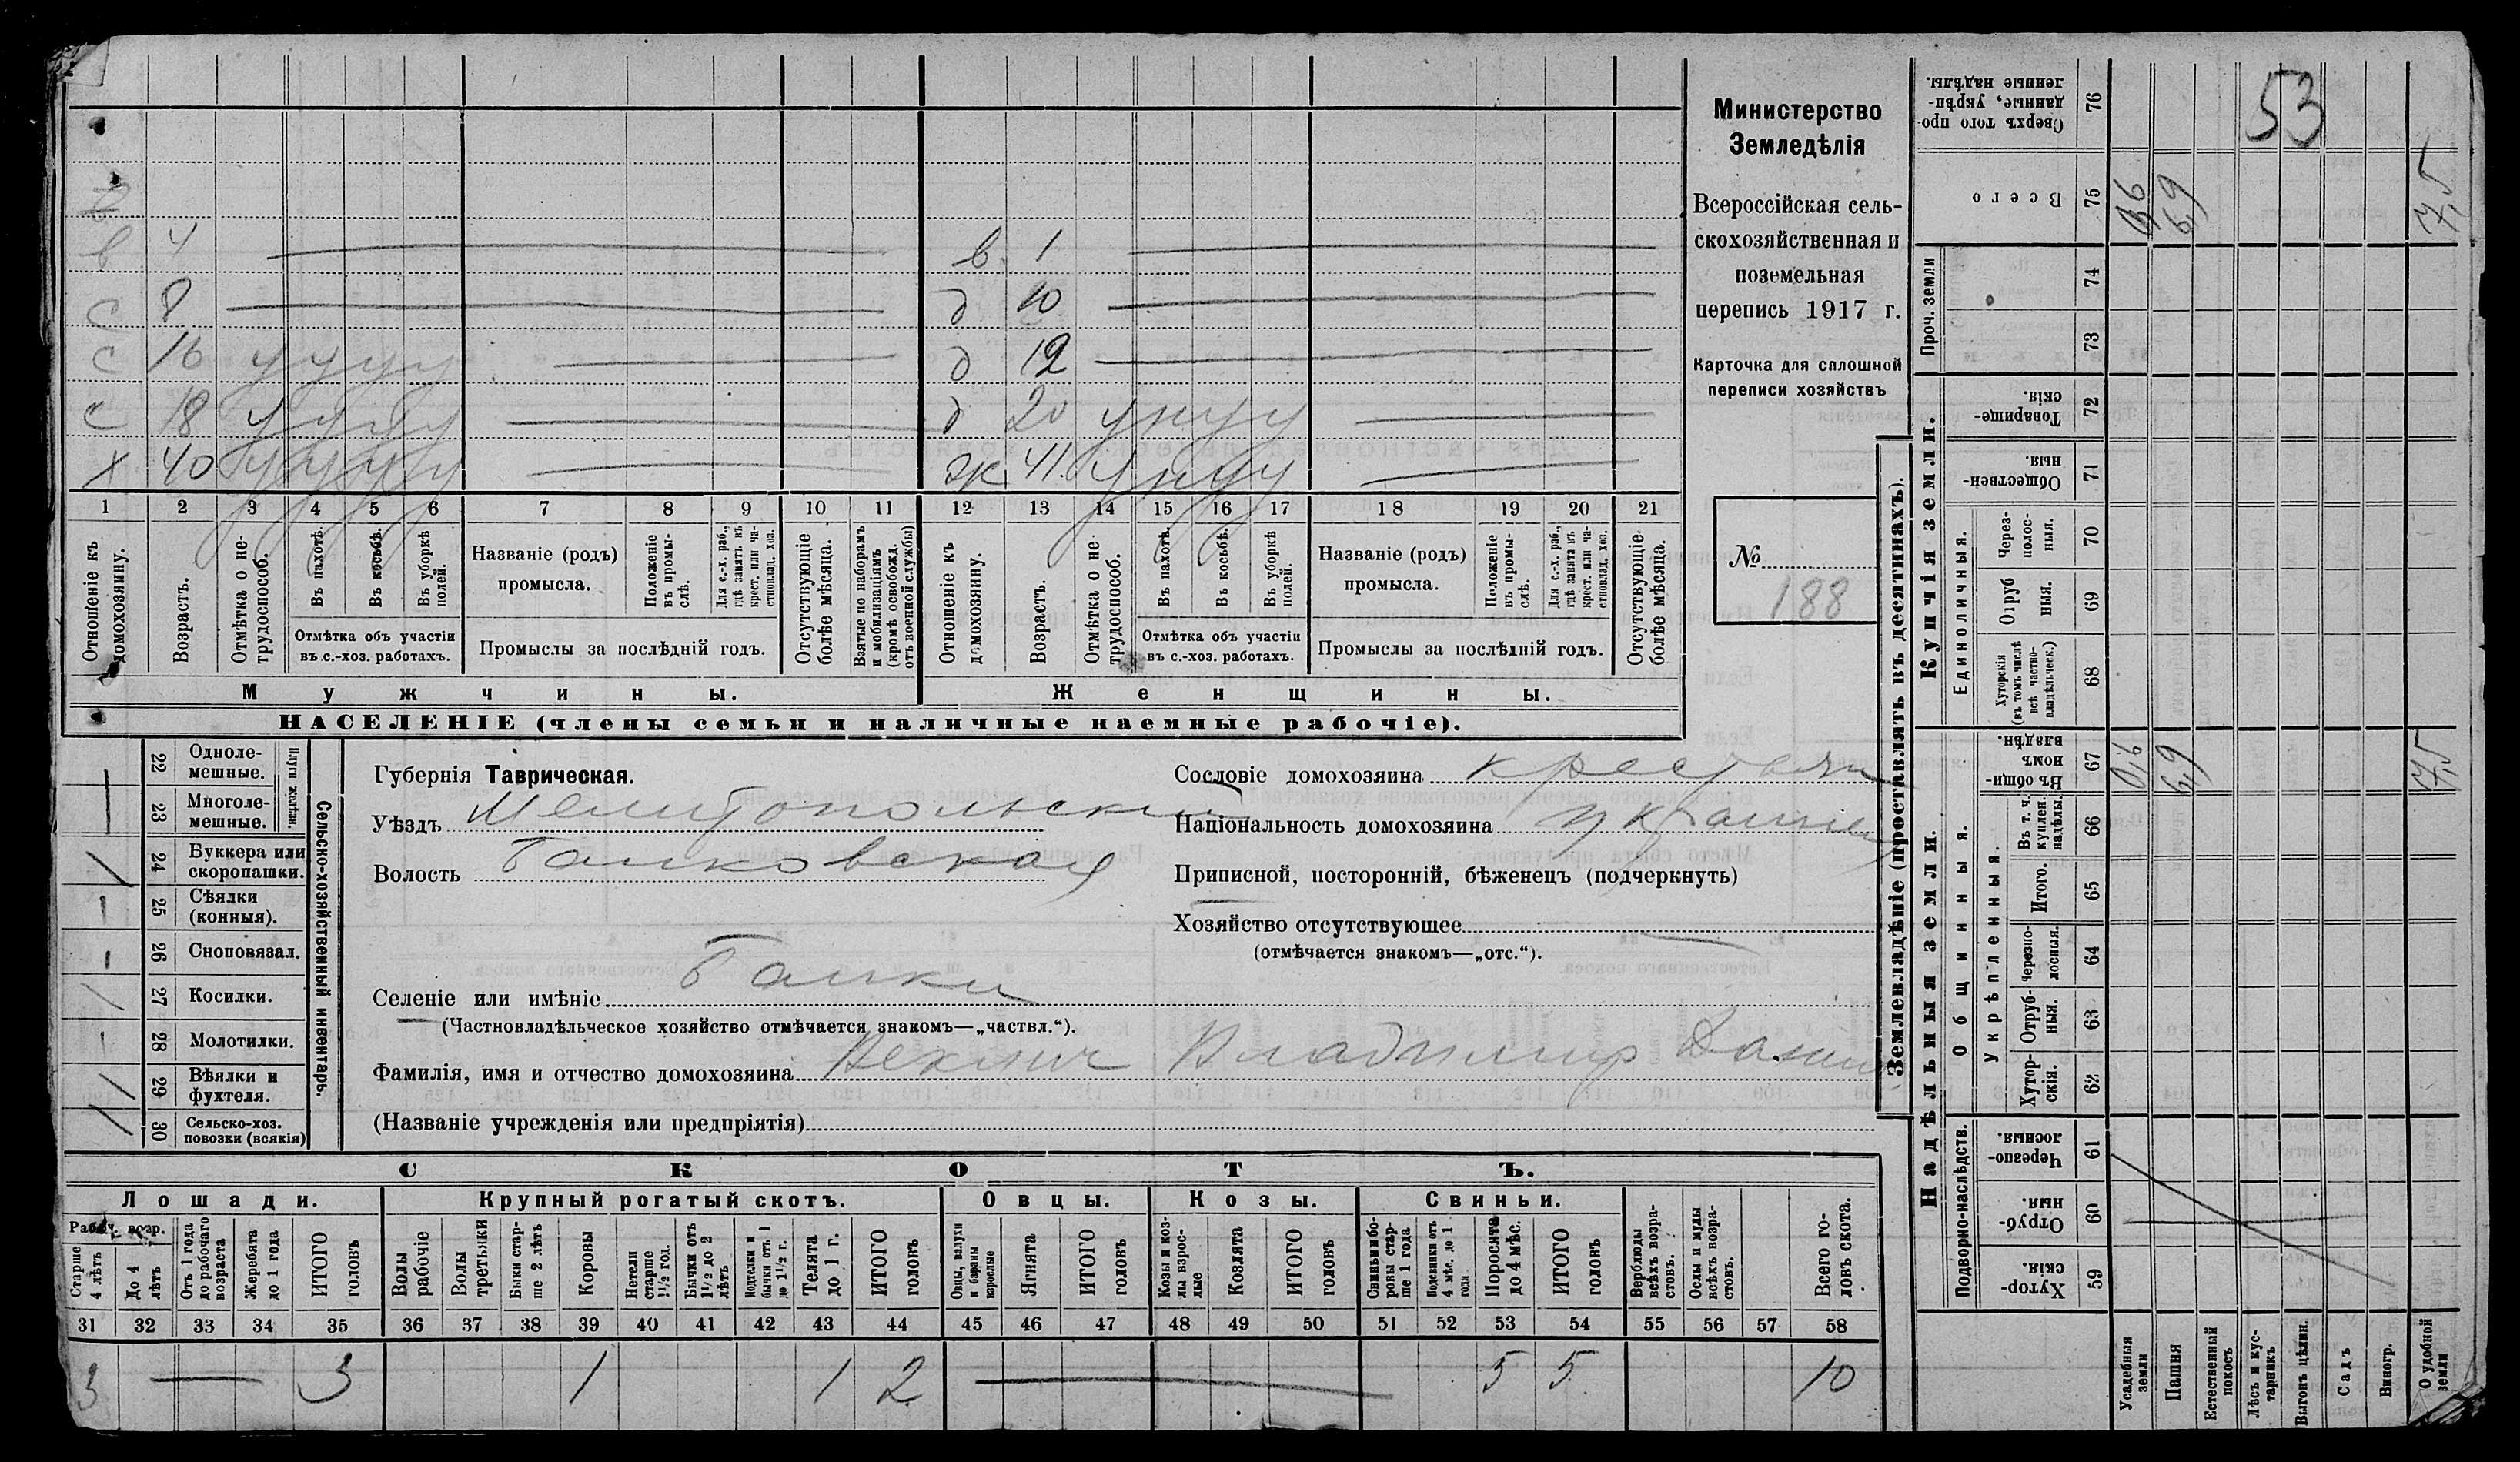 53
Министерство
Земледѣлія
Всероссійская сель-
скохозяйственная и
поземельная
перепись 1917 г.
Карточка для сплошной
переписи хозяйствъ
№
188
в 4 в. 1
с 8 д 10
с 16 у у у у д 12
с 18 у у у у д 20 у н у у
х 40 у у у у ж 41. у н у у
1 2 3 4 5 6 7 8 9 10 11 12 13 14 15 16 17 18 19 20 21
Отношеніе къ домохозяину.
Возрастъ.
Отмѣтка о не-трудоспособ.
Въ пахотѣ.
Въ косьбѣ.
Въ уборкѣ полей.
Отмѣтка объ участіи
въ с.-хоз. работахъ.
Названіе (родъ)
промысла.
Положеніе въ промы-слѣ.
Для с.-х. раб., гдѣ занятъ въ крест. или ча-стновлад. хоз.
Промыслы за послѣдній годъ.
Отсутствующіе болѣе мѣсяца.
Взятые по наборамъ и мобилизаціямъ (кромѣ освобожд. отъ военной службы)
Отношеніе къ домохозяину.
Возрастъ.
Отмѣтка о не-трудоспособ.
Въ пахотѣ.
Въ косьбѣ.
Въ уборкѣ полей.
Отмѣтка объ участіи
въ с.-хоз. работахъ.
Названіе (родъ)
промысла.
Положеніе въ промы-слѣ.
Для с.-х. раб., гдѣ занята въ крест. или ча-стновлад. хоз.
Промыслы за послѣдній годъ.
Отсутствующіе болѣе мѣсяца.
Мужчины. Женщины.
НАСЕЛЕНІЕ (члены семьи и наличные наемные рабочіе).
Сельско-хозяйственный инвентарь.
Плуги желѣзн.
22 Одноле-
мешные.
23 Многоле-
мешные.
24 Буккера или
скоропашки.
25 Сѣялки
(конныя).
26 Сноповязал.
27 Косилки.
28 Молотилки.
29 Вѣялки и
фухтеля.
30 Сельско-хоз.
повозки (всякія)
Губернія Таврическая.
Уѣздъ Мелитопольский
Волость Балковская
Селеніе или имѣніе Балки
(Частновладѣльческое хозяйство отмѣчается знакомъ—„частвл.“).
Сословіе домохозяина крестьян
Національность домохозяина украине
Приписной, посторонній, бѣженецъ (подчеркнуть)
Хозяйство отсутствующее
(отмѣчается знакомъ—„отс.“).
Фамилія, имя и отчество домохозяина Владимир
(Названіе учрежденія или предпріятія)
СКОТЪ.
Лошади. Крупный рогатый скотъ. Овцы. Козы. Свиньи.
Рабоч. возр.
Старше 4 лѣтъ
До 4 лѣтъ
Отъ 1 года до рабочаго возраста
Жеребята до 1 года
ИТОГО головъ
Волы рабочіе
Волы третьяки
Быки стар-ше 2 лѣтъ
Коровы
Нетели старше 1½ год.
Бычки отъ 1½ до 2 лѣтъ
Подтелки и бычки отъ 1 до 1½ г.
Телята до 1 г.
ИТОГО головъ
Овцы, валухи и бараны взрослые
Ягнята
ИТОГО головъ
Козы и коз-лы взрос-лые
Козлята
ИТОГО головъ
Свиньи и бо-ровы стар-ше 1 года
Подсвинки отъ 4 мѣс. до 1 года
Поросята до 4 мѣс.
ИТОГО головъ
Верблюды всѣхъ возра-стовъ.
Ослы и мулы всѣхъ возра-стовъ.
Всего го-ловъ скота.
31 32 33 34 35 36 37 38 39 40 41 42 43 44 45 46 47 48 49 50 51 52 53 54 55 56 57 58
3 3 1 1 2 5 5 10
Землевладѣніе (проставлять въ десятинахъ).
Надѣльныя земли. Купчія земли.
Подворно-наслѣдств.
Общинныя.
Укрѣпленныя.
Единоличныя.
Проч. земли
59 Хутор-скія.
60 Отруб-ныя.
61 Черезпо-лосныя.
62 Хутор-скія.
63 Отруб-ныя.
64 Черезпо-лосныя.
65 Итого.
66 Въ т. ч. куплен. надѣлы.
67 Въ общи-номъ владѣн. 0,6 6,9 7,5
68 Хуторскія (въ томъ числѣ всѣ частно-владѣльческ.)
69 Отруб ныя.
70 Через-полос-ныя.
71 Обществен-ныя.
72 Товарище-скія.
73
74
75 Всего 0,6 6,9 7,5
76 Сверхъ того про-данные, укрѣп-ленные надѣлы.
Усадебныя земли
Пашня
Естественный покосъ
Лѣсъ и кус-тарникъ
Выгонъ цѣлин.
Садъ
Виногр.
О удобной земли